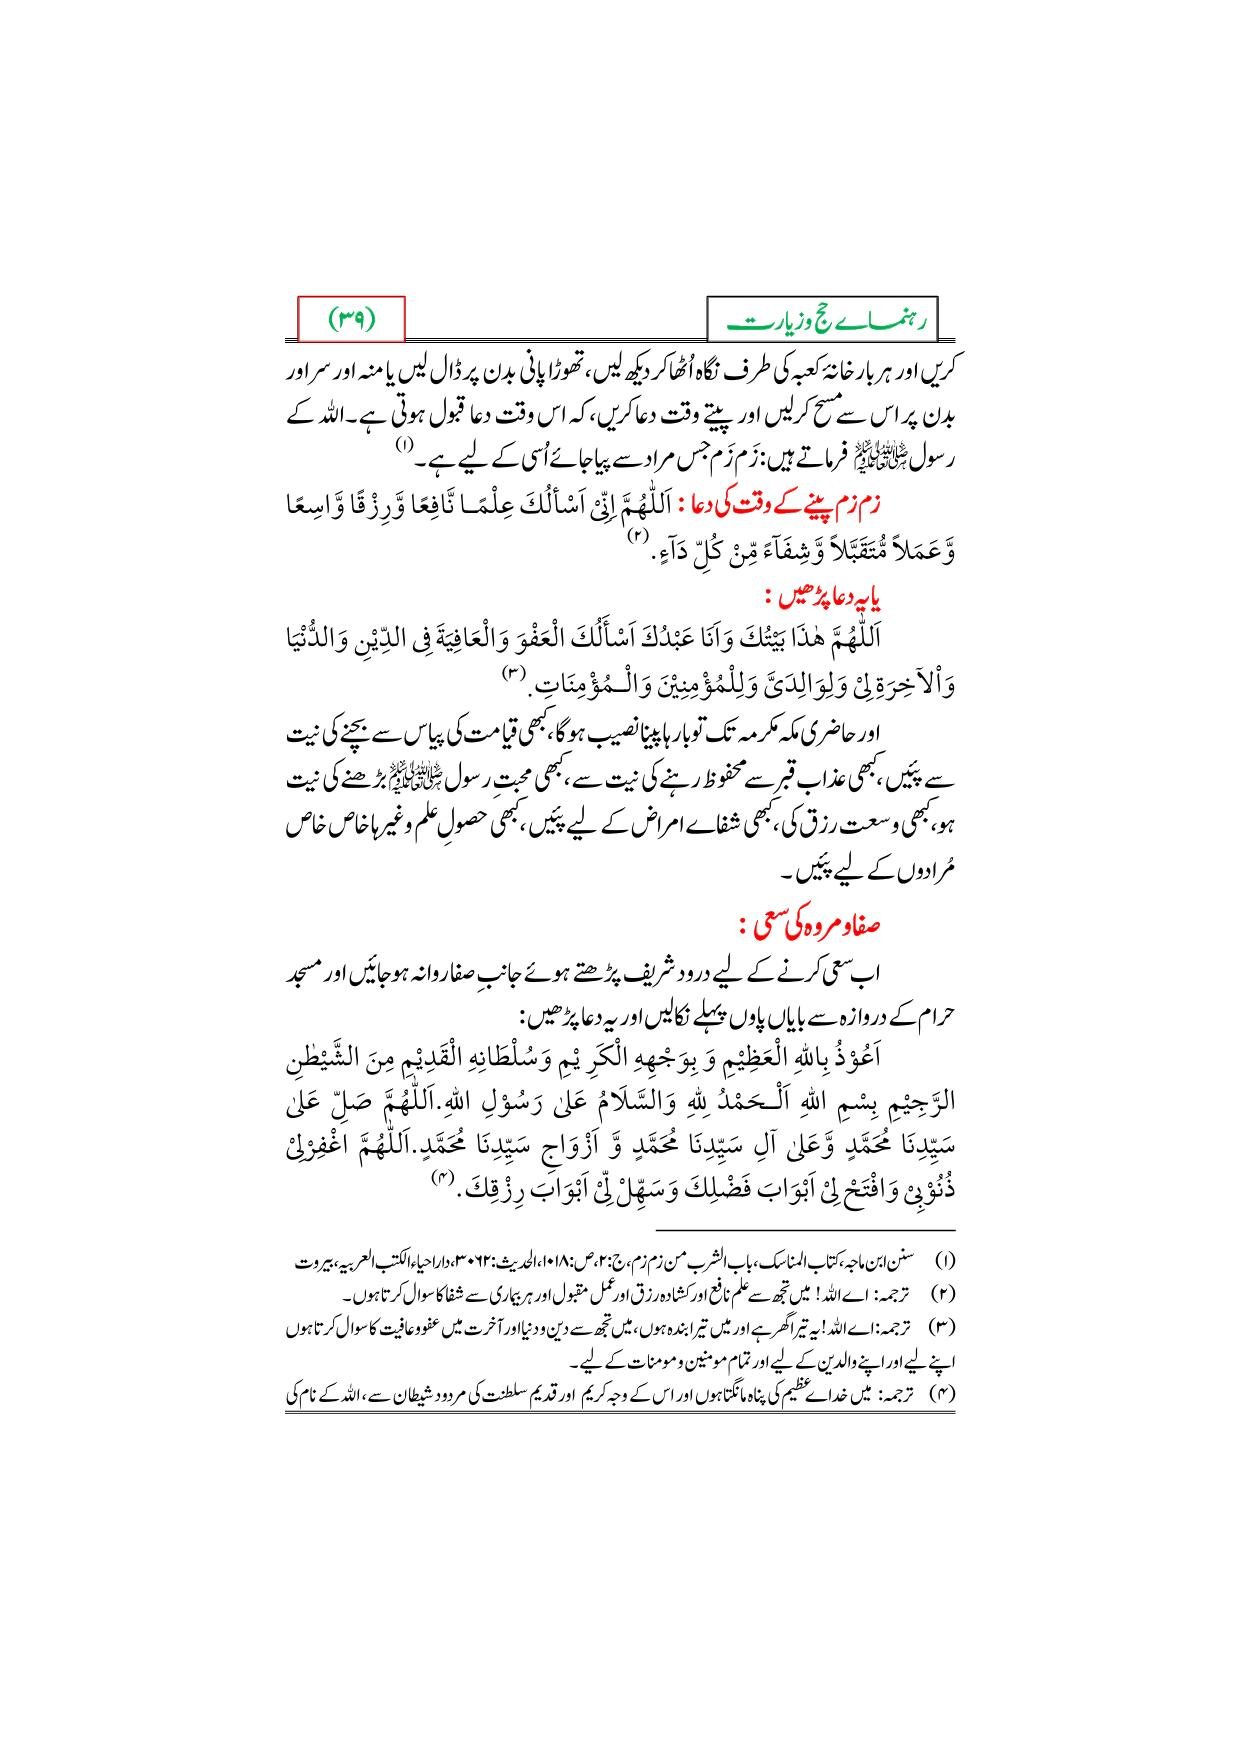 رہنماے حج وزیارت
(۳۹)
کریں اور ہر بار خانۂ کعبہ کی طرف نگاہ اُٹھا کر دیکھ لیں، تھوڑا پانی بدن پر ڈال لیں یا منہ اور سر اور
بدن پر اس سے مسح کرلیں اور پیتے وقت دعا کریں، کہ اس وقت دعا قبول ہوتی ہے۔ اللہ کے
رسول ﷺ فرماتے ہیں: زَم زَم جس مراد سے پیا جائے اُسی کے لیے ہے۔(۱)
زم زم پینے کے وقت کی دعا : اَللّٰهُمَّ اِنِّیْ اَسْألُكَ عِلْمًا نَّافِعًا وَّرِزْقًا وَّاسِعًا
وَّعَمَلاً مُّتَقَبَّلاً وَّشِفَآءً مِّنْ كُلِّ دَآءٍ.(۲)
یا یہ دعا پڑھیں :
اَللّٰهُمَّ هٰذَا بَيْتُكَ وَاَنَا عَبْدُكَ اَسْأَلُكَ الْعَفْوَ وَالْعَافِيَةَ فِی الدِّيْنِ وَالدُّنْيَا
وَاْلآخِرَةِ لِیْ وَلِوَالِدَیَّ وَلِلْمُؤْمِنِيْنَ وَالْمُؤْمِنَاتِ.(۳)
اور حاضری مکہ مکرمہ تک تو بارہا پینا نصیب ہوگا، کبھی قیامت کی پیاس سے بچنے کی نیت
سے پئیں، کبھی عذاب قبر سے محفوظ رہنے کی نیت سے، کبھی محبتِ رسول ﷺ بڑھنے کی نیت
ہو، کبھی وسعت رزق کی، کبھی شفاے امراض کے لیے پئیں، کبھی حصولِ علم وغیرہا خاص خاص
مُرادوں کے لیے پئیں۔
صفا و مروہ کی سعی :
اب سعی کرنے کے لیے درود شریف پڑھتے ہوئے جانبِ صفا روانہ ہوجائیں اور مسجد
حرام کے دروازہ سے بایاں پاوں پہلے نکالیں اور یہ دعا پڑھیں:
اَعُوْذُ بِاللهِ الْعَظِيْمِ وَ بِوَجْهِهِ الْكَرِيْمِ وَسُلْطَانِهِ الْقَدِيْمِ مِنَ الشَّيْطٰنِ
الرَّجِيْمِ بِسْمِ اللهِ اَلْحَمْدُ لِلهِ وَالسَّلَامُ عَلیٰ رَسُوْلِ اللهِ.اَللّٰهُمَّ صَلِّ عَلیٰ
سَيِّدِنَا مُحَمَّدٍ وَّعَلیٰ آلِ سَيِّدِنَا مُحَمَّدٍ وَّ اَزْوَاجِ سَيِّدِنَا مُحَمَّدٍ.اَللّٰهُمَّ اغْفِرْلِیْ
ذُنُوْبِیْ وَافْتَحْ لِیْ اَبْوَابَ فَضْلِكَ وَسَهِّلْ لِّیْ اَبْوَابَ رِزْقِكَ.(۴)
(۱) سنن ابن ماجہ، کتاب المناسک، باب الشرب من زم زم، ج:۲، ص:۱۰۱۸، الحدیث:۳۰۶۲، دار احیاء الکتب العربیہ، بیروت
(۲) ترجمہ: اے اللہ! میں تجھ سے علم نافع اور کشادہ رزق اور عمل مقبول اور ہر بیماری سے شفا کا سوال کرتا ہوں۔
(۳) ترجمہ: اے اللہ! یہ تیرا گھر ہے اور میں تیرا بندہ ہوں، میں تجھ سے دین و دنیا اور آخرت میں عفو و عافیت کا سوال کرتا ہوں
اپنے لیے اور اپنے والدین کے لیے اور تمام مومنین و مومنات کے لیے۔
(۴) ترجمہ: میں خداے عظیم کی پناہ مانگتا ہوں اور اس کے وجہ کریم اور قدیم سلطنت کی مردود شیطان سے، اللہ کے نام کی